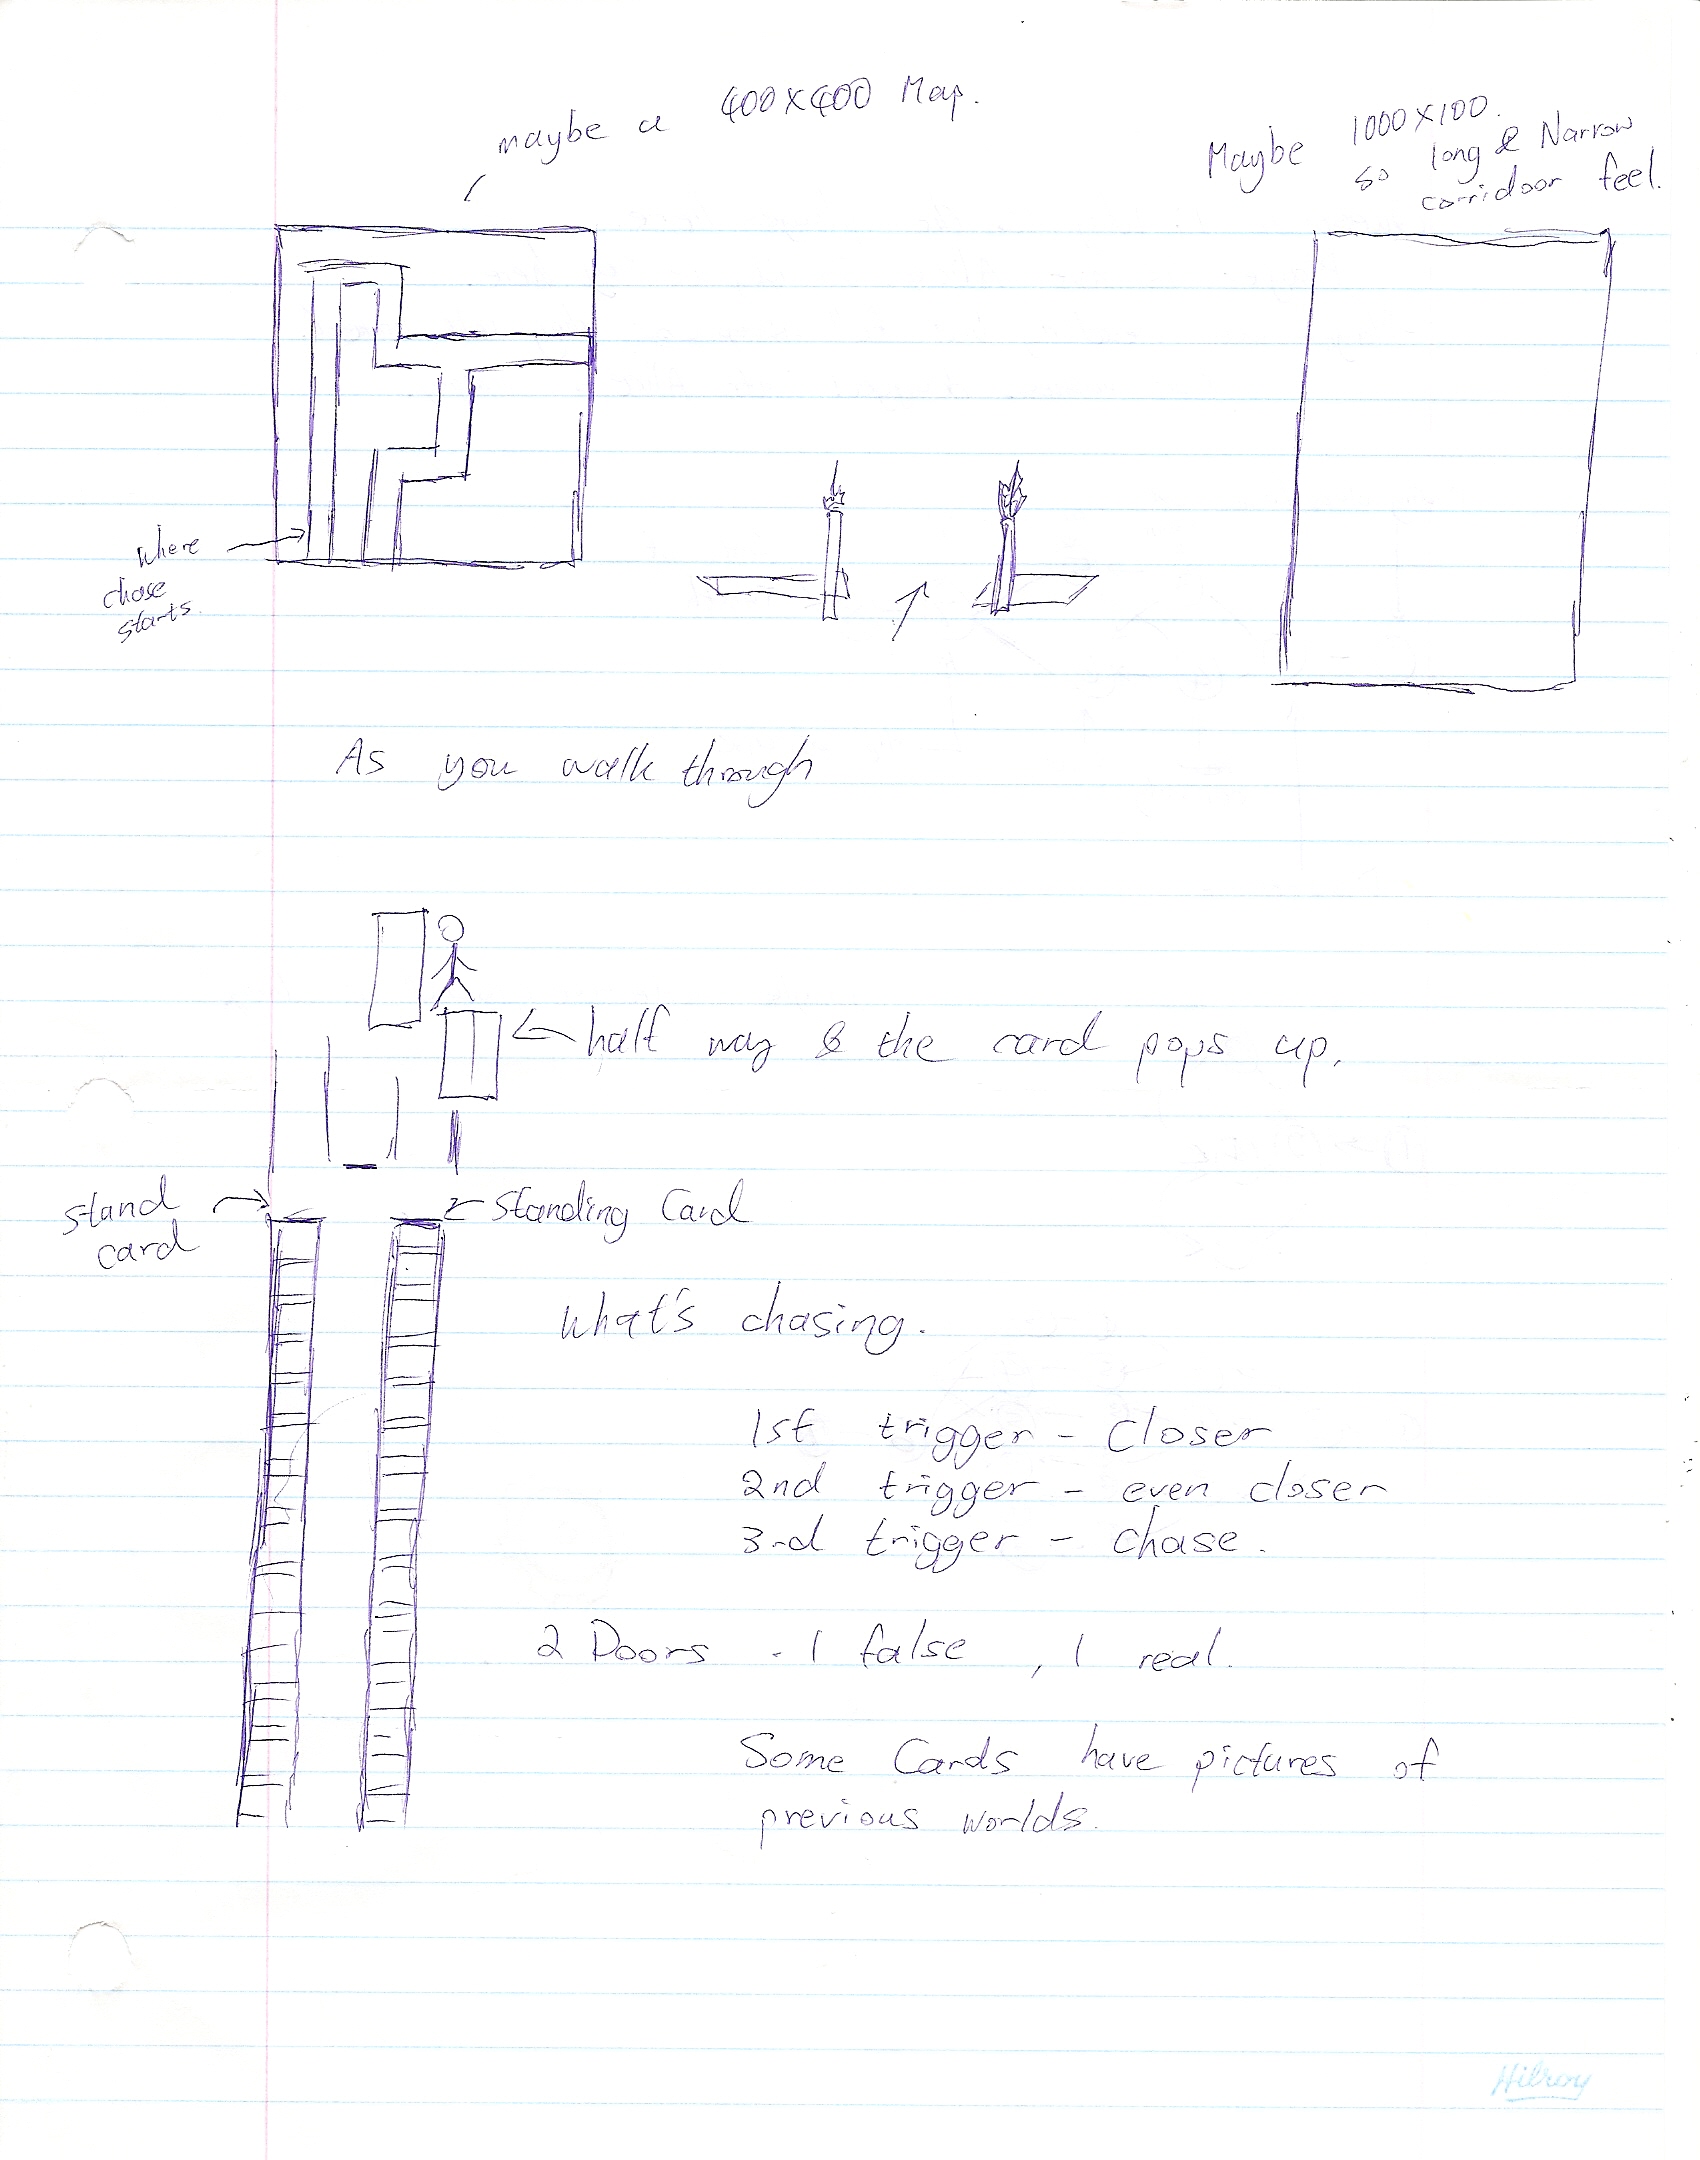 maybe a 400x400 Map.
Maybe 1000x100.
so long & Narrow
corridoor feel.
where
chase
starts.
As you walk through
half way & the card pops up.
stand
card
Standing Card
What's chasing.
1st trigger - Closer
2nd trigger - even closer
3rd trigger - Chase.
2 Doors - 1 false, 1 real.
Some Cards have pictures of
previous worlds.
Hilroy